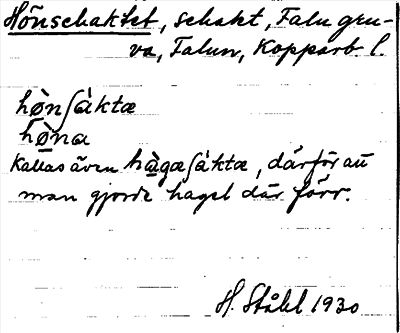 Hönschaktet, schakt, Falu gru-
va, Falun, Kopparb. l.
hø̀nʃàktæ
hø̀na
Kallas även hàgæʃàktæ, därför att
man gjorde hagel där förr.
H. Ståhl 1930